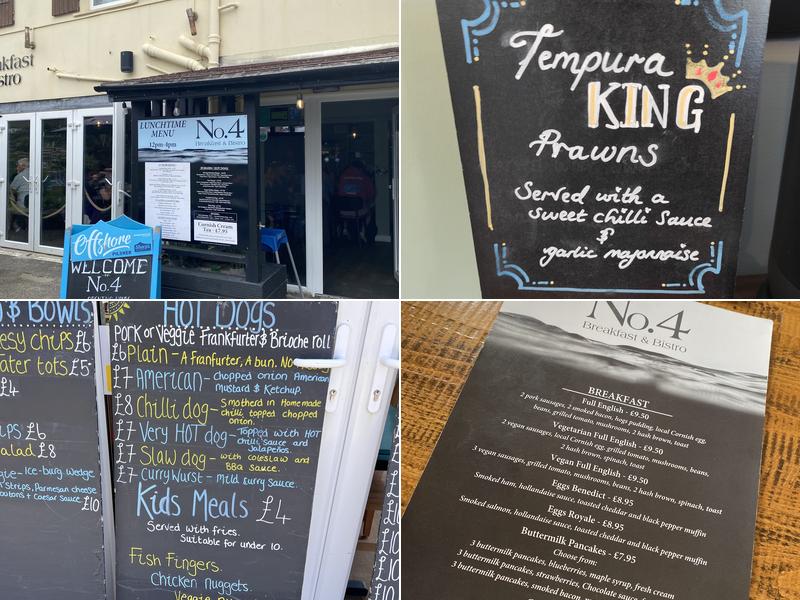 kfast
stro
LUNCHTIME
MENU
12pm-4pm
No.4
Breakfast & Bistro
Cornish Cream
Tea - £7.95
Offshore
PILSNER
Sharp's
WELCOME
No.4
Tempura
KING
Prawns
Served with a
sweet chilli sauce
&
garlic mayonnaise
& BOWLS
esy chips £6
ater tots £5
£4
ups £6
alad £8
gie - Ice-burg wedge
n strips, Parmesan cheese
outons + Caesar Sauce £10
HOT DOGS
Pork or Veggie Frankfurter & Brioche roll
£6 Plain - A franfurter, A bun. No
£7 American - chopped onion American
mustard & Ketchup.
£8 Chilli dog - Smotherd in Homemade
chilli, topped chopped
onion.
£7 Very HOT dog - Topped with HOT
chilli sauce and
Jalapeños.
£7 Slaw dog - with coleslaw and
BBQ sauce.
£7 Currywurst - mild curry sauce.
Kids Meals £4
Served with fries.
Suitable for under 10.
Fish Fingers.
Chicken nuggets.
£10
£10
No.4
Breakfast & Bistro
BREAKFAST
Full English - £9.50
2 pork sausages, 2 smoked bacon, hogs pudding, local Cornish egg,
beans, grilled tomato, mushrooms, 2 hash brown, toast
Vegetarian Full English - £9.50
2 vegan sausages, local Cornish egg, grilled tomato, mushrooms, beans,
2 hash brown, spinach, toast
Vegan Full English - £9.50
3 vegan sausages, grilled tomato, mushrooms, beans, 2 hash brown, spinach, toast
Eggs Benedict - £8.95
Smoked ham, hollandaise sauce, toasted cheddar and black pepper muffin
Eggs Royale - £8.95
Smoked salmon, hollandaise sauce, toasted cheddar and black pepper muffin
Buttermilk Pancakes - £7.95
Choose from:
3 buttermilk pancakes, blueberries, maple syrup, fresh cream
3 buttermilk pancakes, strawberries, Chocolate sauce,
3 buttermilk pancakes, smoked bacon,